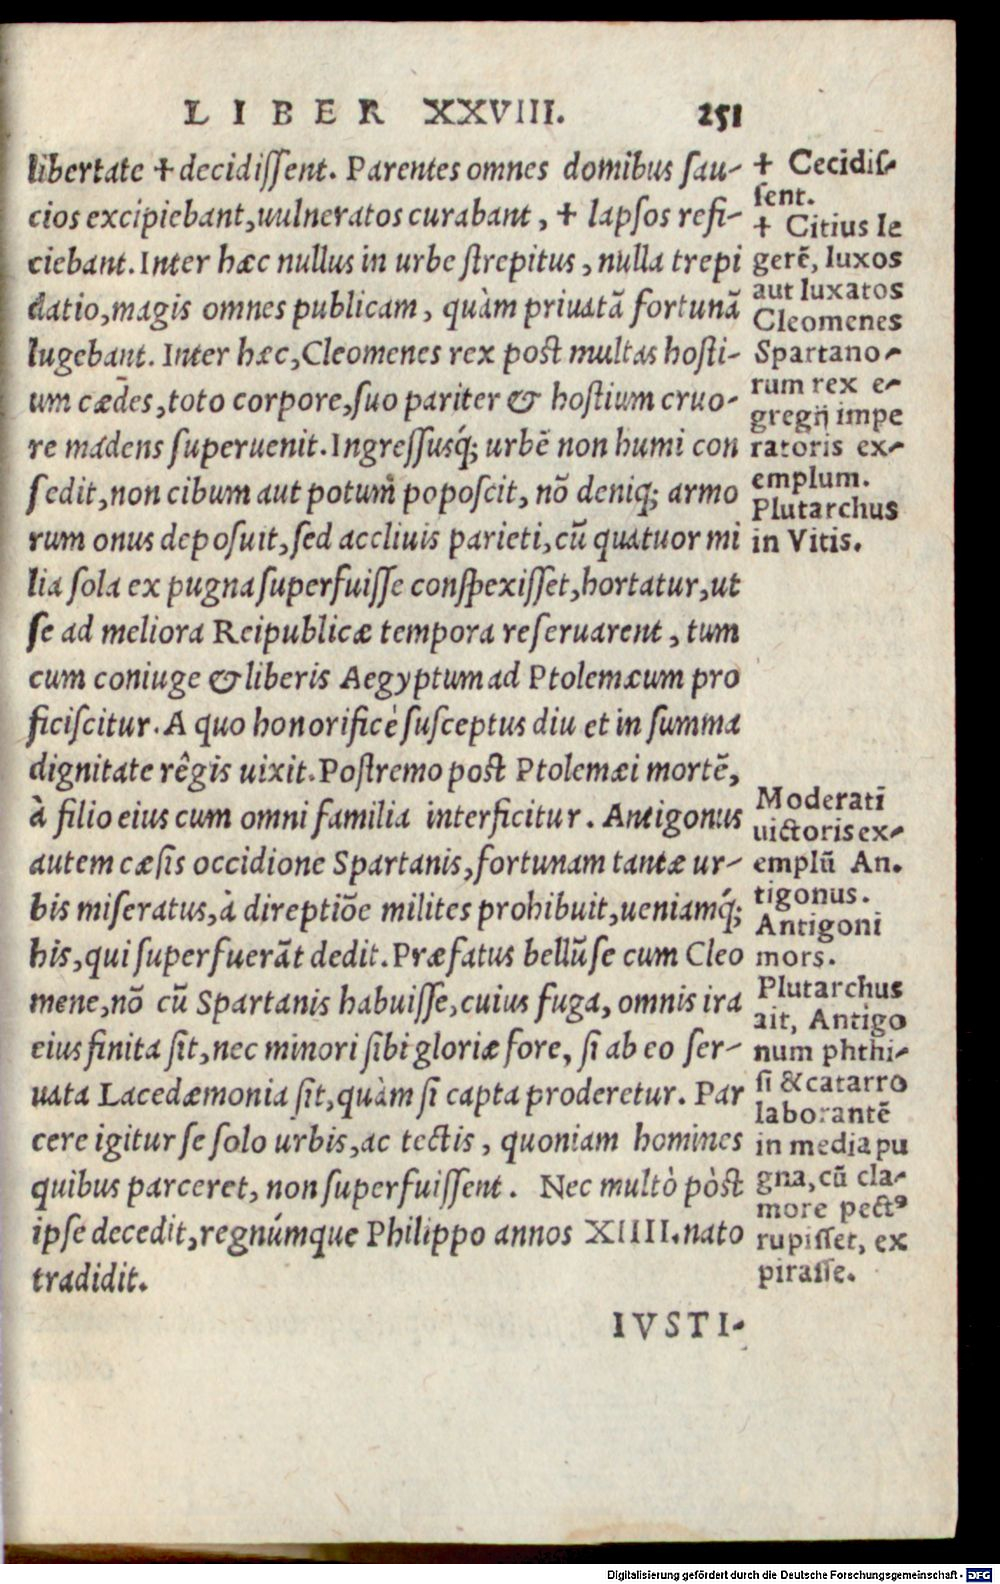 LIBER XXVIII. 251
libertate + decidissent. Parentes omnes domibus sau-
cios excipiebant, uulneratos curabant, + lapsos refi-
ciebant. Inter hæc nullus in urbe strepitus, nulla trepi
datio, magis omnes publicam, quàm priuatã fortunã
lugebant. Inter hæc, Cleomenes rex post multas hosti-
um cædes, toto corpore, suo pariter & hostium cruo-
re madens superuenit. Ingressusq́; urbẽ non humi con
sedit, non cibum aut potum poposcit, nõ deniq; armo
rum onus deposuit, sed accliuis parieti, cũ quatuor mi
lia sola ex pugna superfuisse conspexisset, hortatur, ut
se ad meliora Reipublicæ tempora reseruarent, tum
cum coniuge & liberis Aegyptum ad Ptolemæum pro
ficiscitur. A quo honorificè susceptus diu et in summa
dignitate rêgis uixit. Postremo post Ptolemæi mortẽ,
à filio eius cum omni familia interficitur. Antigonus
autem cæsis occidione Spartanis, fortunam tantæ ur-
bis miseratus, à direptiõe milites prohibuit, ueniamq́;
his, qui superfuerãt dedit. Præfatus bellũ se cum Cleo
mene, nõ cũ Spartanis habuisse, cuius fuga, omnis ira
eius finita sit, nec minori sibi gloriæ fore, si ab eo ser-
uata Lacedæmonia sit, quàm si capta proderetur. Par
cere igitur se solo urbis, ac tectis, quoniam homines
quibus parceret, non superfuissent. Nec multò pòst
ipse decedit, regnúmque Philippo annos XIIII. nato
tradidit.
IVSTI-
+ Cecidis-
sent.
+ Citius le
gerẽ, luxos
aut luxatos
Cleomenes
Spartano-
rum rex e-
gregij impe
ratoris ex-
emplum.
Plutarchus
in Vitis.
Moderati
uictoris ex-
emplũ An.
tigonus.
Antigoni
mors.
Plutarchus
ait, Antigo
num phthi-
si & catarro
laborantẽ
in media pu
gna, cũ cla-
more pectꝰ
rupisset, ex
pirasse.
Digitalisierung gefördert durch die Deutsche Forschungsgemeinschaft - DFG